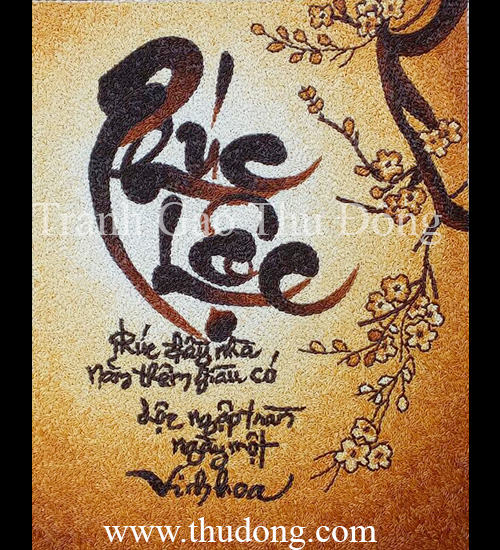 Phúc
Lộc
Tranh Gao Thu Dong
Phúc đầy nhà
năm thêm giàu có
Lộc ngập tràn
ngày một
Vinh hoa
www.thudong.com